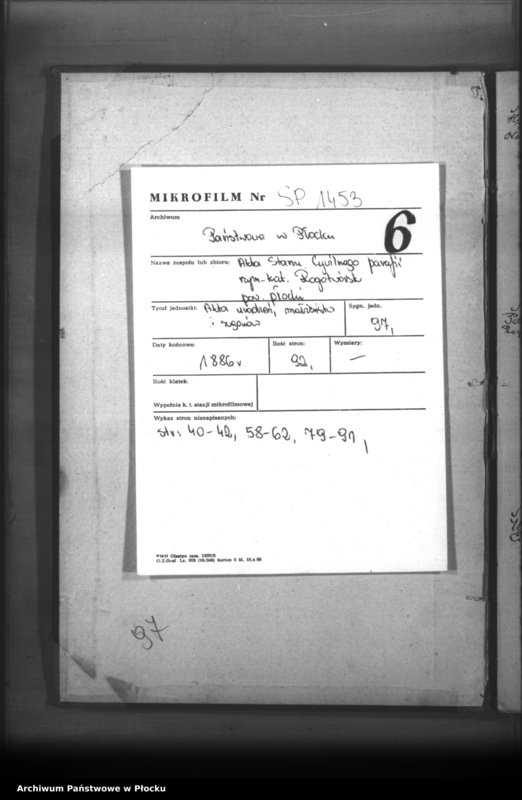 MIKROFILM Nr SP 1453
Archiwum
Państwowe w Płocku
6
Nazwa zespołu lub zbioru: Akta Stanu Cywilnego parafii
rzym-kat. Rogotwórsk
pow. płocki
Tytuł jednostki: Akta urodzeń, małżeństw
i zgonów
Sygn. jedn.
97,
Daty końcowe:
1886 r.
Ilość stron:
92,
Wymiary:
—
Ilość klatek:
Wypełnia k. t. stacji mikrofilmowej
Wykaz stron niezapisanych:
str: 40-42, 58-62, 79-91,
97
Archiwum Państwowe w Płocku